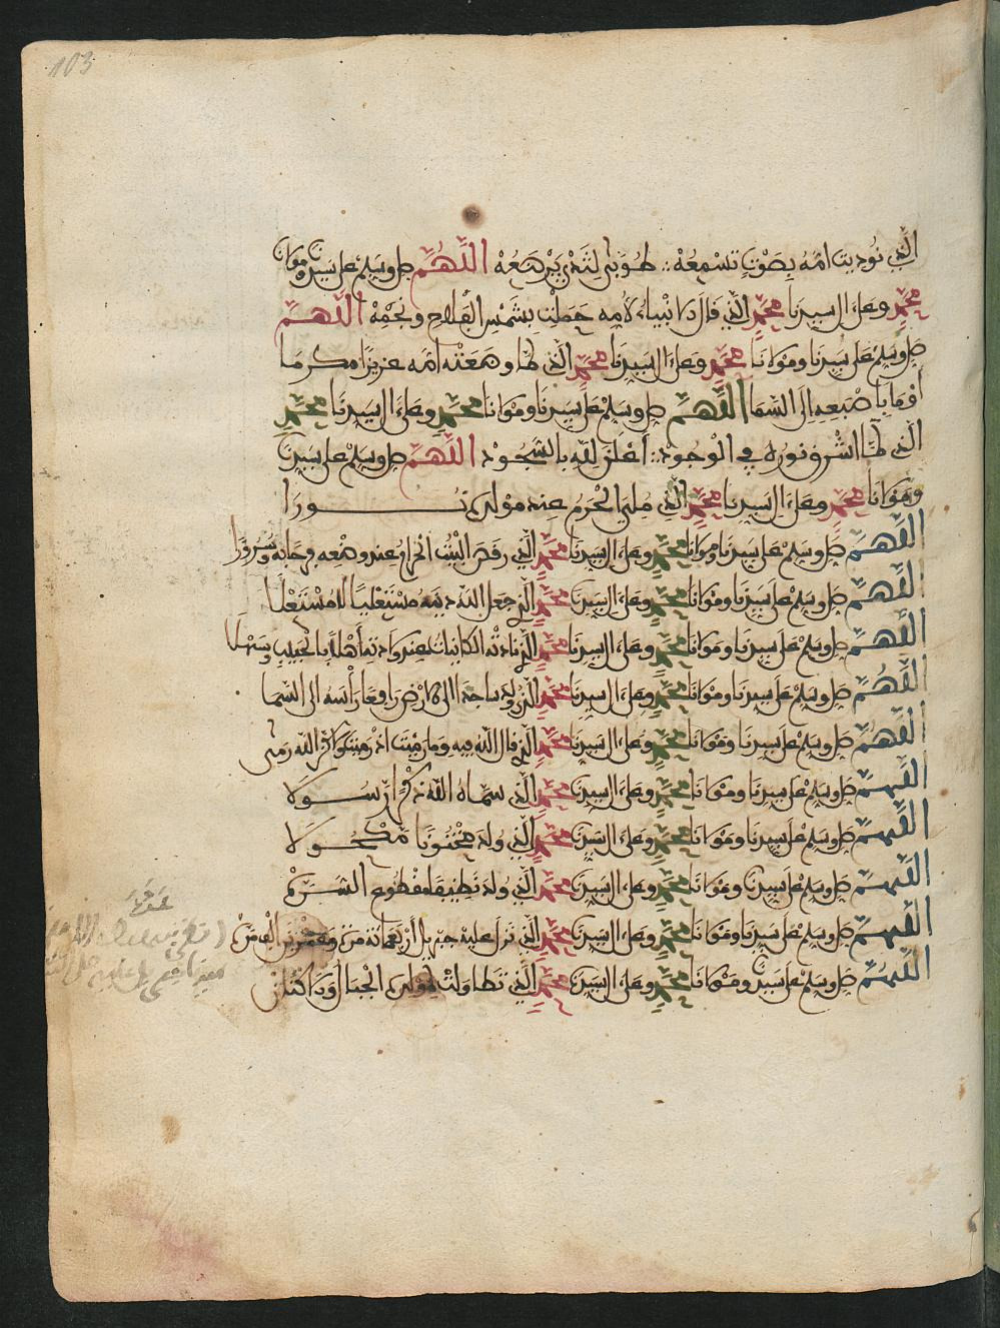 103
الذي نوديت امه بصوت تسمعه طوبى لثدي يرضعه اللهم صل وسلم على سيدنا ومولانا
محمد وعلى ال سيدنا محمد الذي قال الانبياء لامه حصلت بشمس الفلاح ونجمه اللهم
صل وسلم على سيدنا ومولانا محمد وعلى ال سيدنا محمد الذي لما وضعته امه عزيزا مكرما
أوما باصبعه إلى السما اللهم صل وسلم على سيدنا ومولانا محمد وعلى ال سيدنا محمد
الذي لما اشرق نوره في الوجود أعلن لله بالسجود اللهم صل وسلم على سيدنا
ومولانا محمد وعلى ال سيدنا محمد الذي ملئ الحرم عند مولده نورا
اللهم صل وسلم على سيدنا ومولانا محمد وعلى ال سيدنا محمد الذي رقص البيت الحرام عند وضعه فرحا به وسرورا
اللهم صل وسلم على سيدنا ومولانا محمد وعلى ال سيدنا محمد الذي جعل الله دينه مستعليا لا مستعلا
اللهم صل وسلم على سيدنا ومولانا محمد وعلى ال سيدنا محمد الذي نادته الكاينات عند ولادته أهلا بالحبيب وسهلا
اللهم صل وسلم على سيدنا ومولانا محمد وعلى ال سيدنا محمد الذي ولد ساجدا الى الارض رافعا رأسه الى السما
اللهم صل وسلم على سيدنا ومولانا محمد وعلى ال سيدنا محمد الذي قال الله فيه وما رميت اذ رميت ولاكن الله رمى
اللهم صل وسلم على سيدنا ومولانا محمد وعلى ال سيدنا محمد الذي سماه الله ذكرا رسولا
اللهم صل وسلم على سيدنا ومولانا محمد وعلى ال سيدنا محمد الذي ولد مختونا مكحولا
اللهم صل وسلم على سيدنا ومولانا محمد وعلى ال سيدنا محمد الذي ولد نظيفا مقطوع السرة
اللهم صل وسلم على سيدنا ومولانا محمد وعلى ال سيدنا محمد الذي نزل عليه جبريل أربعمائة مرة وعشرين الف مرة
اللهم صل وسلم على سيدنا ومولانا محمد وعلى ال سيدنا محمد الذي تطاولت لمولده الجبال